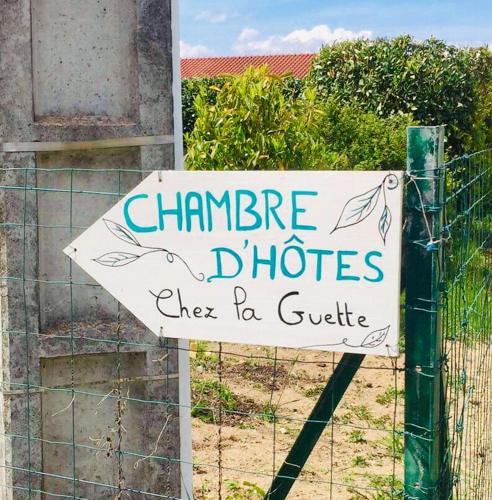 CHAMBRE
D'HÔTES
Chez la Guette